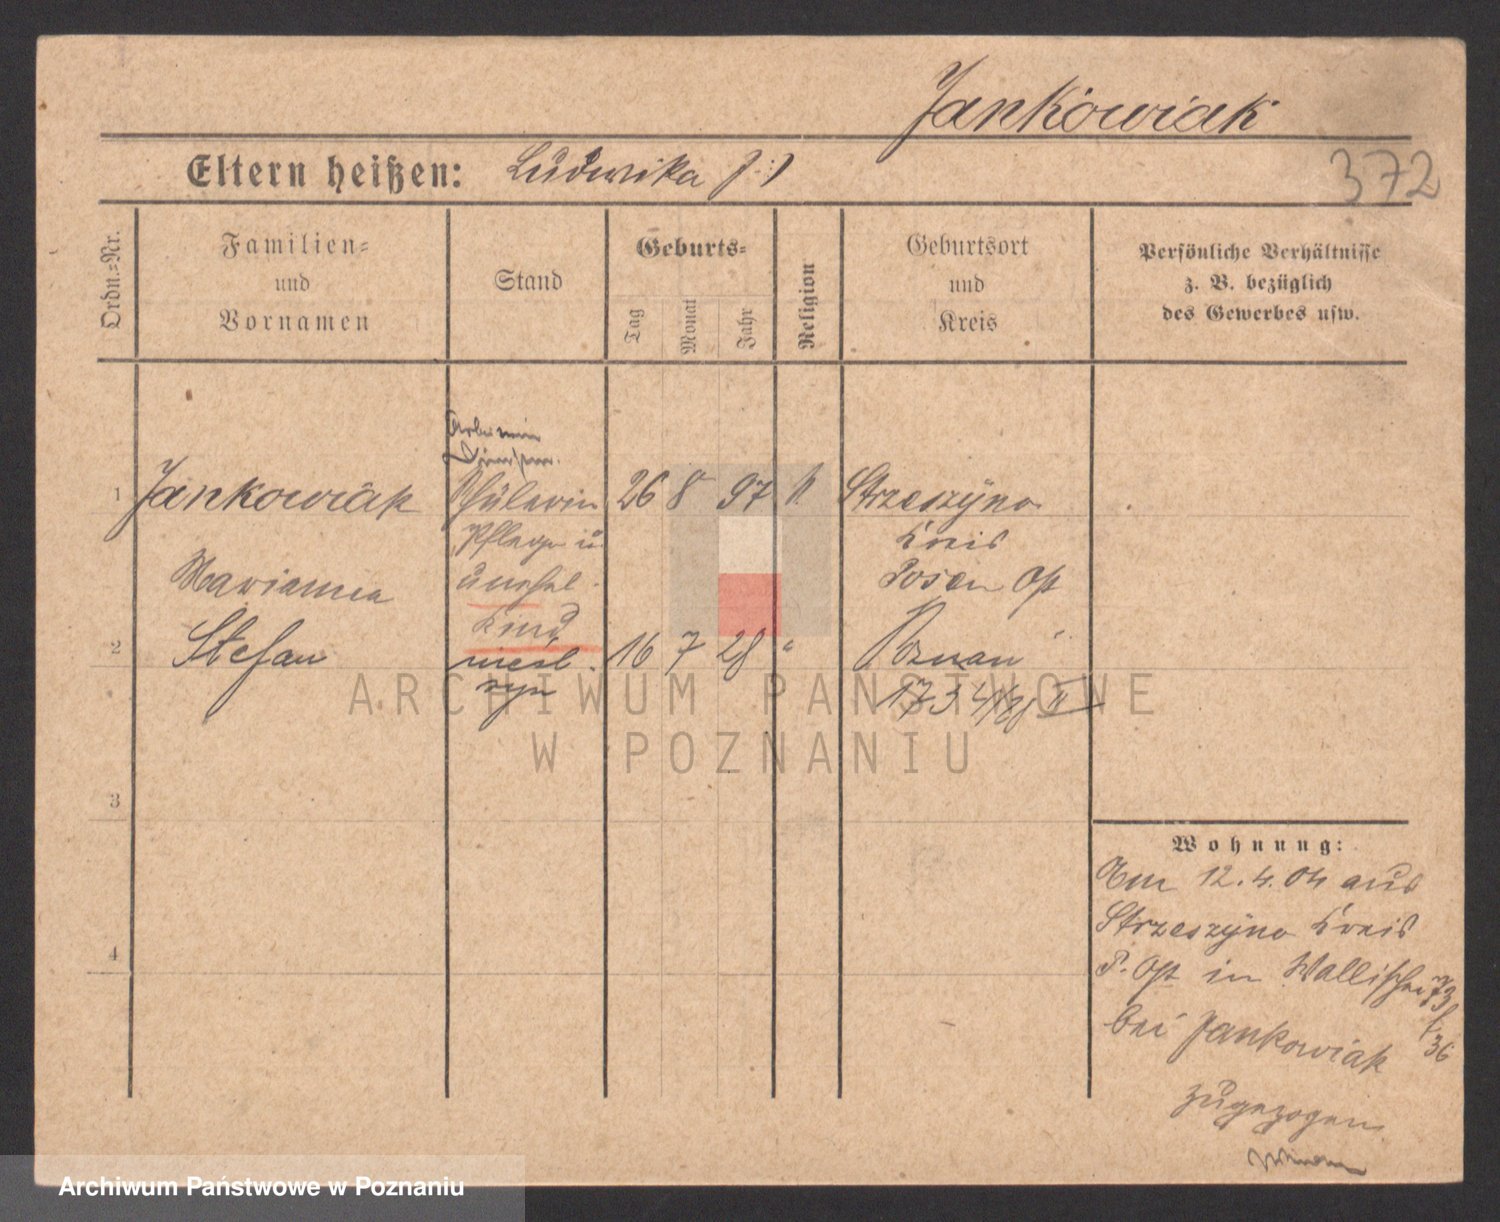 Jankowiak
372
Eltern heißen: Ludwika J. :)
Ordn.=Nr.
Familien=
und
Vornamen
Stand
Geburts=
Tag
Monat
Jahr
Religion
Geburtsort
und
Kreis
Persönliche Verhältnisse
z. B. bezüglich
des Gewerbes usw.
1 Jankowiak Schülerin 26 8 97 k Strzeszyno
Pflege u. Kreis
Marianna unehel. Posen Ost
Kind
2 Stefan niesl. 16 7 28 " Poznań
syn 1734/28 II
3
4
Wohnung:
Am 12.4.04 aus
Strzeszyno Kreis
P. Ost in Wallischei 73
bei Jankowiak 36
zugezogen
ARCHIWUM PAŃSTWOWE
W POZNANIU
Archiwum Państwowe w Poznaniu